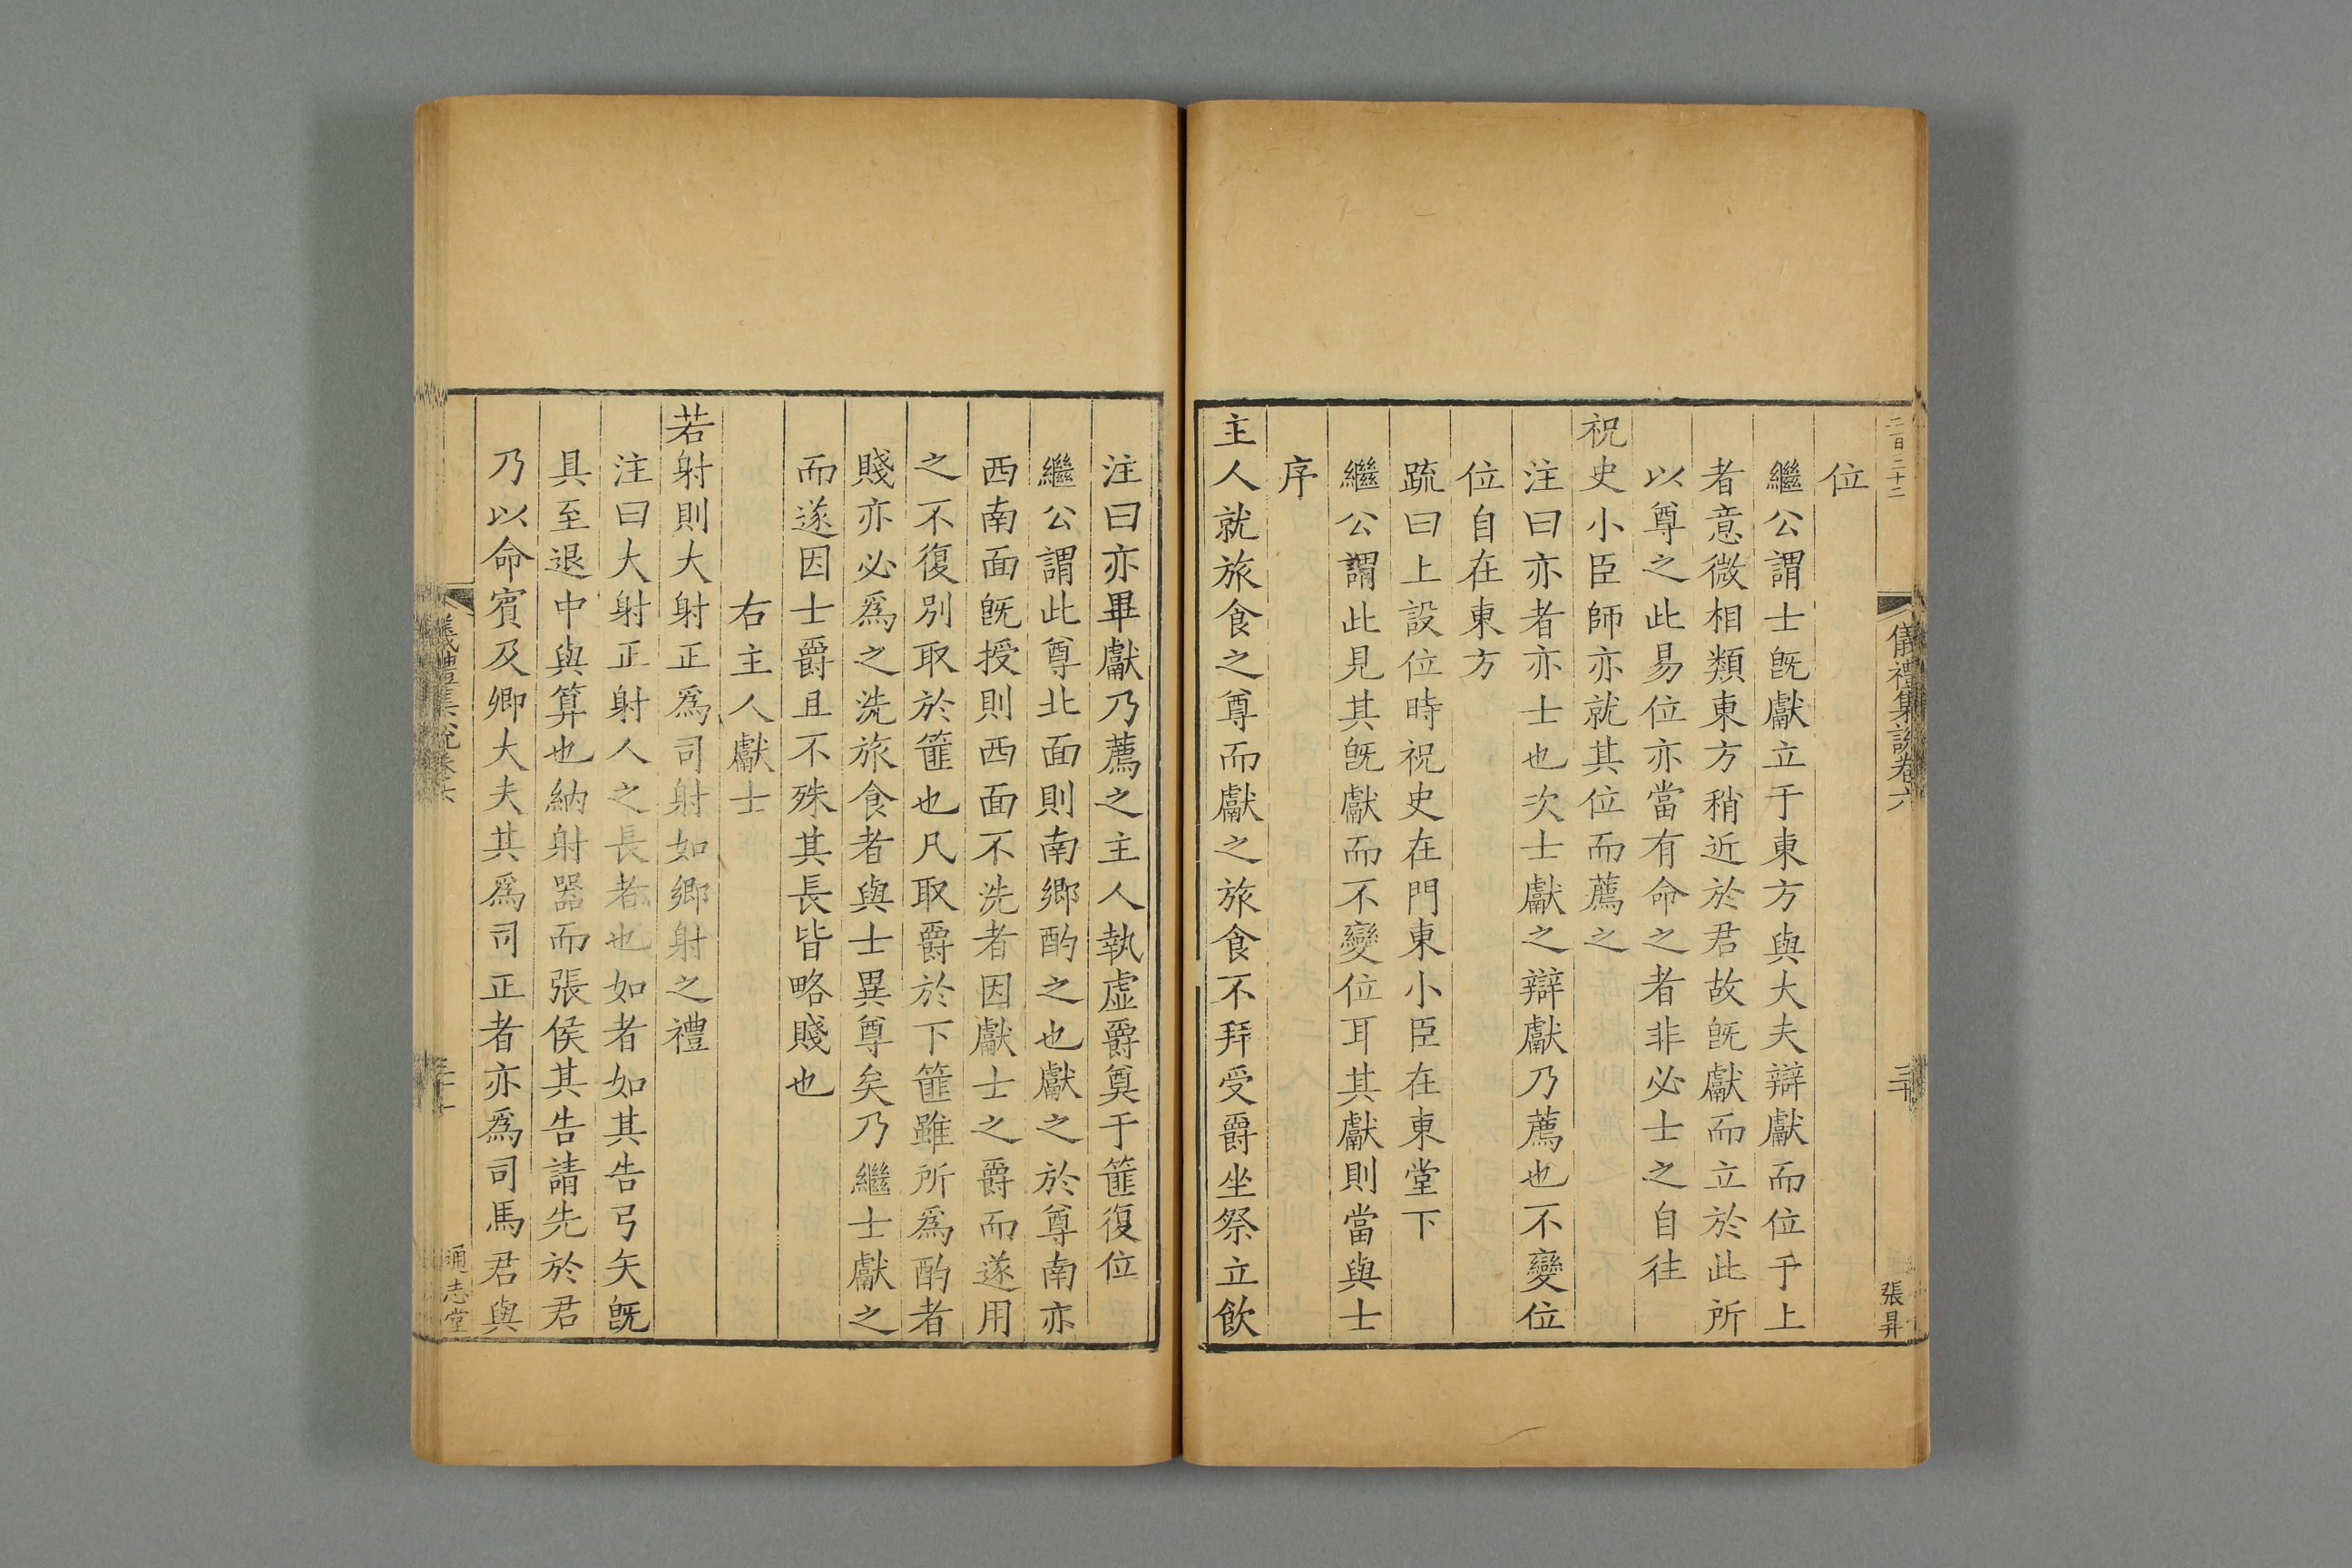 二百二十二
儀禮集說卷六
三十
張昇
位
繼公謂士旣獻立于東方與大夫辯獻而位于上
者意微相類東方稍近於君故旣獻而立於此所
以尊之此易位亦當有命之者非必士之自往
祝史小臣師亦就其位而薦之
注曰亦者亦士也次士獻之辯獻乃薦也不變位
位自在東方
疏曰上設位時祝史在門東小臣在東堂下
繼公謂此見其旣獻而不變位耳其獻則當與士
序
主人就旅食之尊而獻之旅食不拜受爵坐祭立飲
注曰亦畢獻乃薦之主人執虛爵奠于篚復位
繼公謂此尊北面則南鄉酌之也獻之於尊南亦
西南面旣授則西面不洗者因獻士之爵而遂用
之不復別取於篚也凡取爵於下篚雖所爲酌者
賤亦必爲之洗旅食者與士異尊矣乃繼士獻之
而遂因士爵且不殊其長皆略賤也
右主人獻士
若射則大射正爲司射如鄉射之禮
注曰大射正射人之長者也如者如其告弓矢旣
具至退中與算也納射器而張侯其告請先於君
乃以命賓及卿大夫其爲司正者亦爲司馬君與
儀禮集說卷六
通志堂